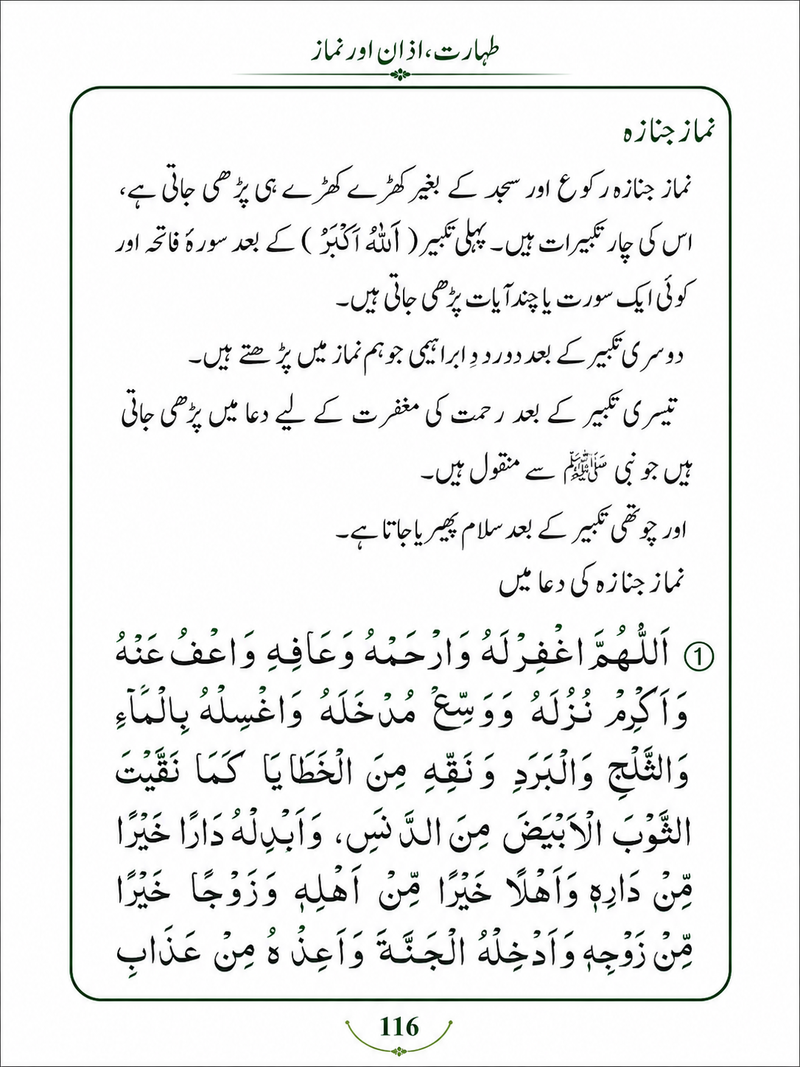 طہارت، اذان اور نماز
نماز جنازہ
نماز جنازہ رکوع اور سجد کے بغیر کھڑے کھڑے ہی پڑھی جاتی ہے،
اس کی چار تکبیرات ہیں۔ پہلی تکبیر ( اَللّٰهُ اَكْبَرُ ) کے بعد سورۂ فاتحہ اور
کوئی ایک سورت یا چند آیات پڑھی جاتی ہیں۔
دوسری تکبیر کے بعد دورد دِ ابراہیمی جو ہم نماز میں پڑھتے ہیں۔
تیسری تکبیر کے بعد رحمت کی مغفرت کے لیے دعا میں پڑھی جاتی
ہیں جو نبی ﷺ سے منقول ہیں۔
اور چوتھی تکبیر کے بعد سلام پھیر یا جاتا ہے۔
نماز جنازہ کی دعا میں
① اَللّٰهُمَّ اغْفِرْ لَهُ وَارْحَمْهُ وَعَافِهِ وَاعْفُ عَنْهُ
وَاَكْرِمْ نُزُلَهُ وَوَسِّعْ مُدْخَلَهُ وَاغْسِلْهُ بِالْمَآءِ
وَالثَّلْجِ وَالْبَرَدِ وَنَقِّهِ مِنَ الْخَطَايَا كَمَا نَقَّيْتَ
الثَّوْبَ الْاَبْيَضَ مِنَ الدَّنَسِ، وَاَبْدِلْهُ دَارًا خَيْرًا
مِّنْ دَارِهٖ وَاَهْلًا خَيْرًا مِّنْ اَهْلِهٖ وَزَوْجًا خَيْرًا
مِّنْ زَوْجِهٖ وَاَدْخِلْهُ الْجَنَّةَ وَاَعِذْهُ مِنْ عَذَابِ
116